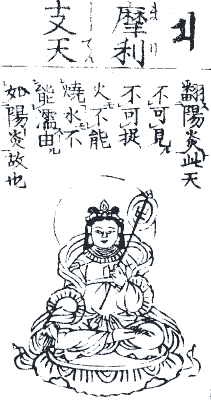 摩利
支天
翻陽炎此天
不可見
不可捉
火不能
燒水不
能濡由
如陽炎故也